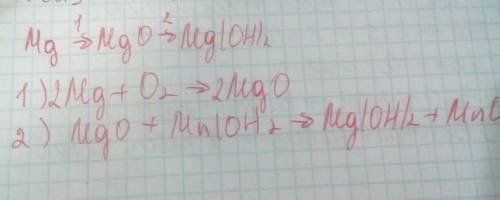 Mg →¹ MgO →² Mg(OH)₂
1) 2Mg + O₂ → 2MgO
2) MgO + Mn(OH)₂ → Mg(OH)₂ + MnO